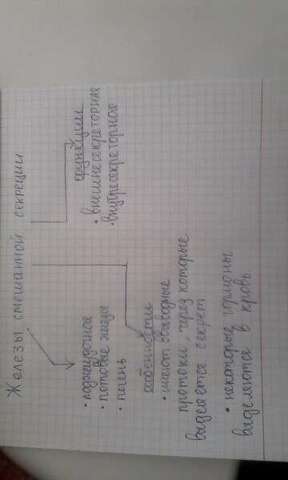 Железы смешанной секреции
• поджелудочное
• потовые железы
• печень
особенности
• имеют выводные
протоки, через которые
выделяется секрет
• некоторые гормоны
выделяются в кровь
функции
• внешнесекреторная
• внутрисекреторная